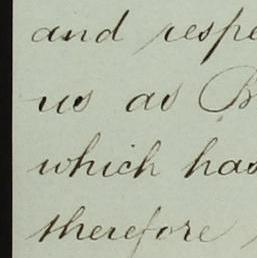 and respe
us as B
which has
therefore